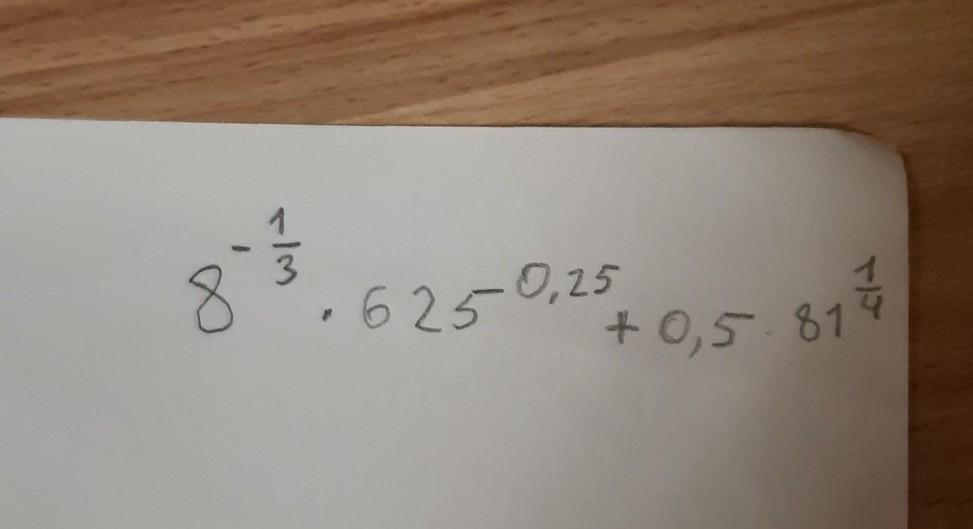 8^{-\frac{1}{3}} · 625^{-0,25} + 0,5 · 81^{\frac{1}{4}}